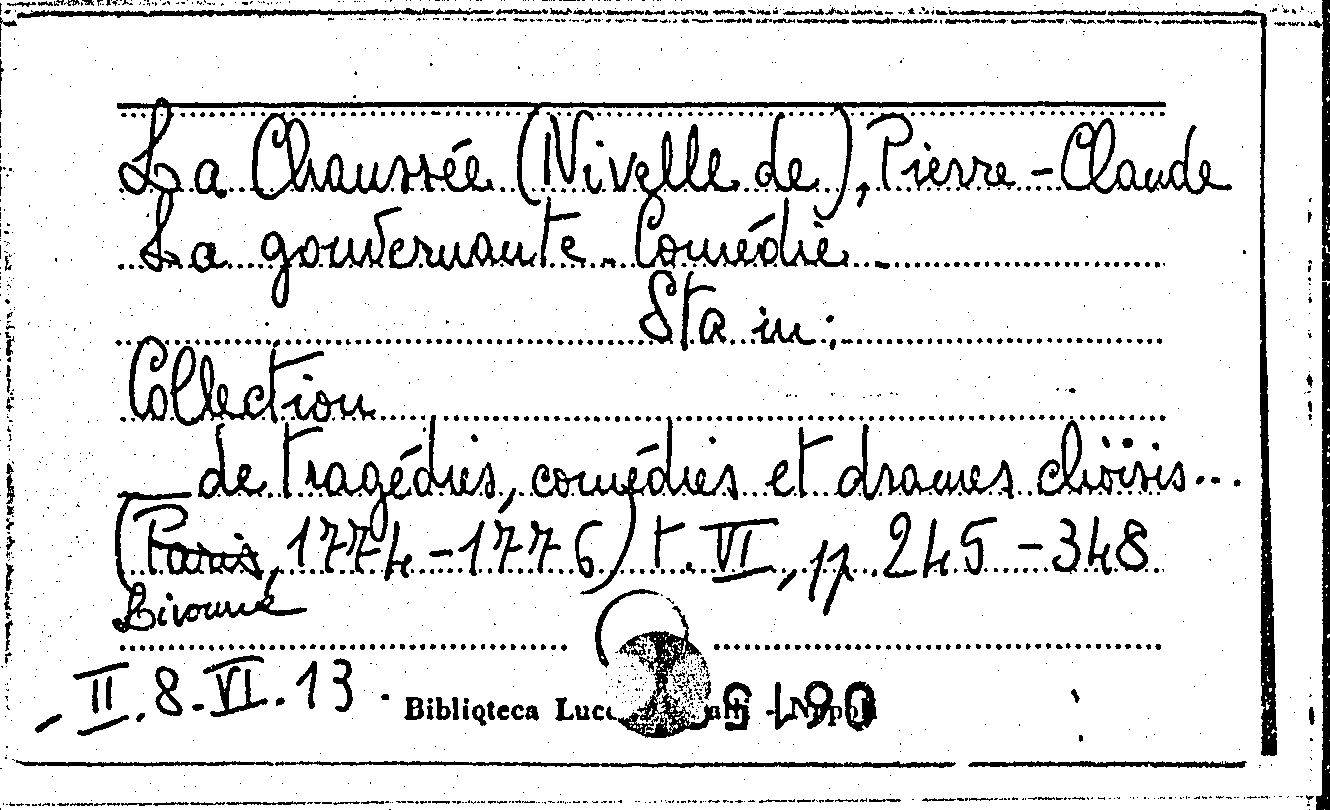 La Chaussée (Nivelle de), Pierre-Claude
La gouvernante. Comédie.
Sta in:
Collection
de tragédies, comédies et drames choisis...
(Paris, 1774-1776) t. VI, pp. 245-348
Livourne
II.8.VI.13.
Biblioteca